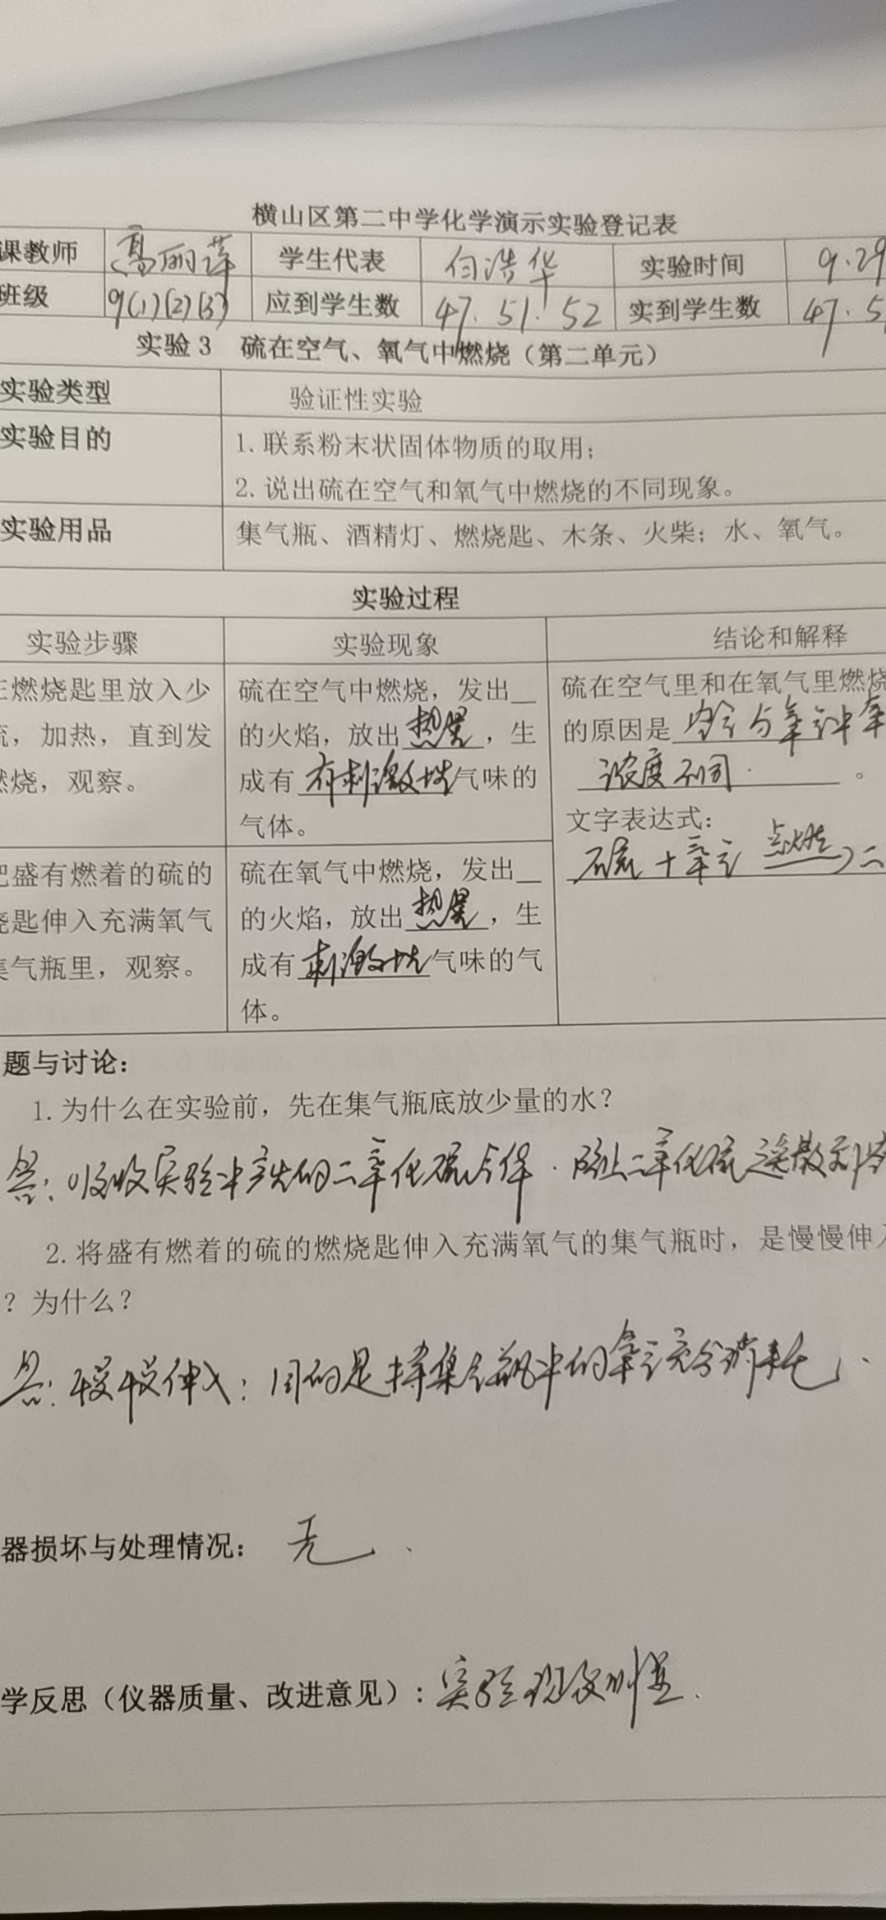 横山区第二中学化学演示实验登记表
课教师 高丽萍 学生代表 白浩华 实验时间 9.29
班级 9(1)(2)(3) 应到学生数 47.51.52 实到学生数 47.5
实验3 硫在空气、氧气中燃烧（第二单元）
实验类型 验证性实验
实验目的 1.联系粉末状固体物质的取用；
2.说出硫在空气和氧气中燃烧的不同现象。
实验用品 集气瓶、酒精灯、燃烧匙、木条、火柴；水、氧气。
实验过程
实验步骤 实验现象 结论和解释
在燃烧匙里放入少
硫，加热，直到发
燃烧，观察。
硫在空气中燃烧，发出
的火焰，放出热量，生
成有有刺激性气味的
气体。
硫在空气里和在氧气里燃烧
的原因是空气与氧气中氧
浓度不同.。
文字表达式：
硫+氧气 点燃→二
把盛有燃着的硫的
烧匙伸入充满氧气
集气瓶里，观察。
硫在氧气中燃烧，发出
的火焰，放出热量，生
成有刺激性气味的气
体。
题与讨论：
1.为什么在实验前，先在集气瓶底放少量的水？
答：吸收实验中产生的二氧化硫气体.防止二氧化硫逸散到
2.将盛有燃着的硫的燃烧匙伸入充满氧气的集气瓶时，是慢慢伸入
？为什么？
答：慢慢伸入：目的是将集气瓶中的氧气充分消耗.
器损坏与处理情况：无.
学反思（仪器质量、改进意见）：实验现象明显.